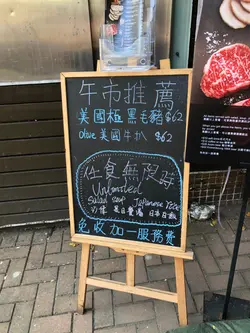 午市推薦
美國極黑毛豬 $62
Olive 美國牛扒 $62
任食無限時
Unlimited
Salad Soup Japanese Rice
沙律 是日餐湯 日本白飯
免收加一服務費